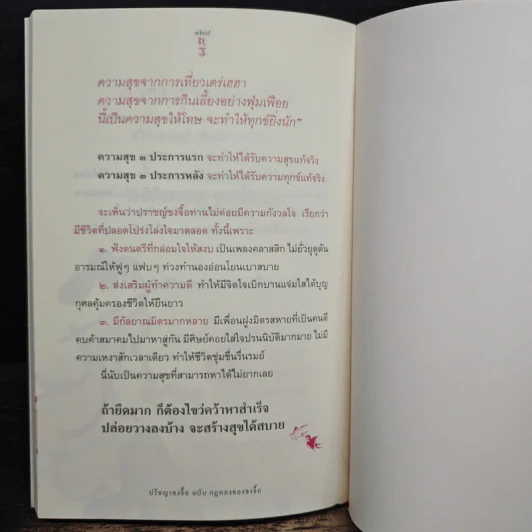 ความสุขจากการเที่ยวเตร่เฮฮา
ความสุขจากการกินเลี้ยงอย่างฟุ่มเฟือย
นี้เป็นความสุขให้โทษ จะทำให้ทุกข์ยิ่งนัก”
ความสุข ๓ ประการแรก จะทำให้ได้รับความสุขแท้จริง
ความสุข ๓ ประการหลัง จะทำให้ได้รับความทุกข์แท้จริง
จะเห็นว่าปราชญ์ขงจื้อท่านไม่ค่อยมีความกังวลใจ เรียกว่า
มีชีวิตที่ปลอดโปร่งโล่งใจมาตลอด ทั้งนี้เพราะ
๑. ฟังดนตรีที่กล่อมใจให้สงบ เป็นเพลงคลาสสิก ไม่ยั่วยุดุดัน
อารมณ์ให้ฟูๆ แฟบๆ ท่วงทำนองอ่อนโยนเบาสบาย
๒. ส่งเสริมผู้ทำความดี ทำให้มีจิตใจเบิกบานแจ่มใสได้บุญ
กุศลคุ้มครองชีวิตให้ยืนยาว
๓. มีกัลยาณมิตรมากหลาย มีเพื่อนฝูงมิตรสหายที่เป็นคนดี
คบค้าสมาคมไปมาหาสู่กัน มีศิษย์คอยใส่ใจปรนนิบัติมากมาย ไม่มี
ความเหงาสักเวลาเดียว ทำให้ชีวิตชุ่มชื่นรื่นรมย์
นี่นับเป็นความสุขที่สามารถหาได้ไม่ยากเลย
ถ้ายึดมาก ก็ต้องไขว่คว้าหาสำเร็จ
ปล่อยวางลงบ้าง จะสร้างสุขได้สบาย
ปรัชญาขงจื้อ ฉบับ กฎทองของขงจื้อ